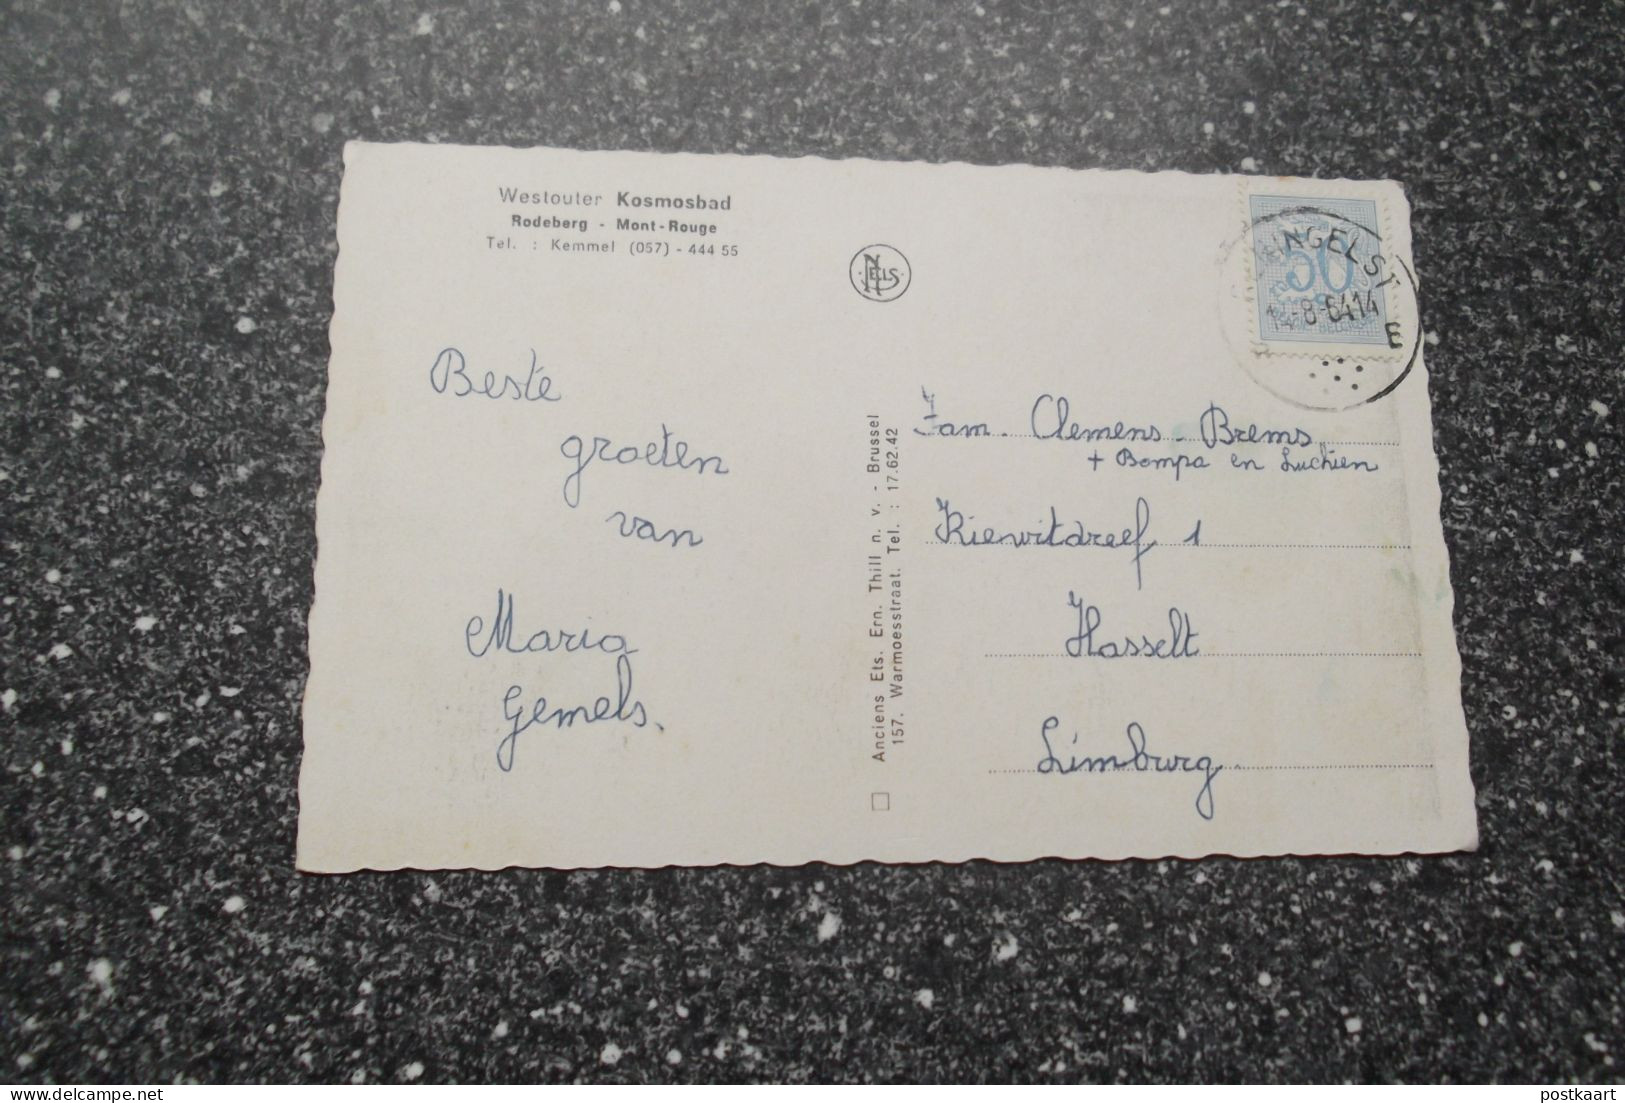 Westouter Kosmosbad
Rodeberg - Mont-Rouge
Tel. : Kemmel (057) - 444 55
NELS
50
8-64 14
E
Beste
groeten
van
Maria
Gemels.
Anciens Ets. Ern. Thill n. v. - Brussel
157. Warmoesstraat. Tel. : 17.62.42
Fam. Clemens - Brems
+ Bompa en Luchien
Kiewitdreef 1
Hasselt
Limburg
delcampe.net
postkaart